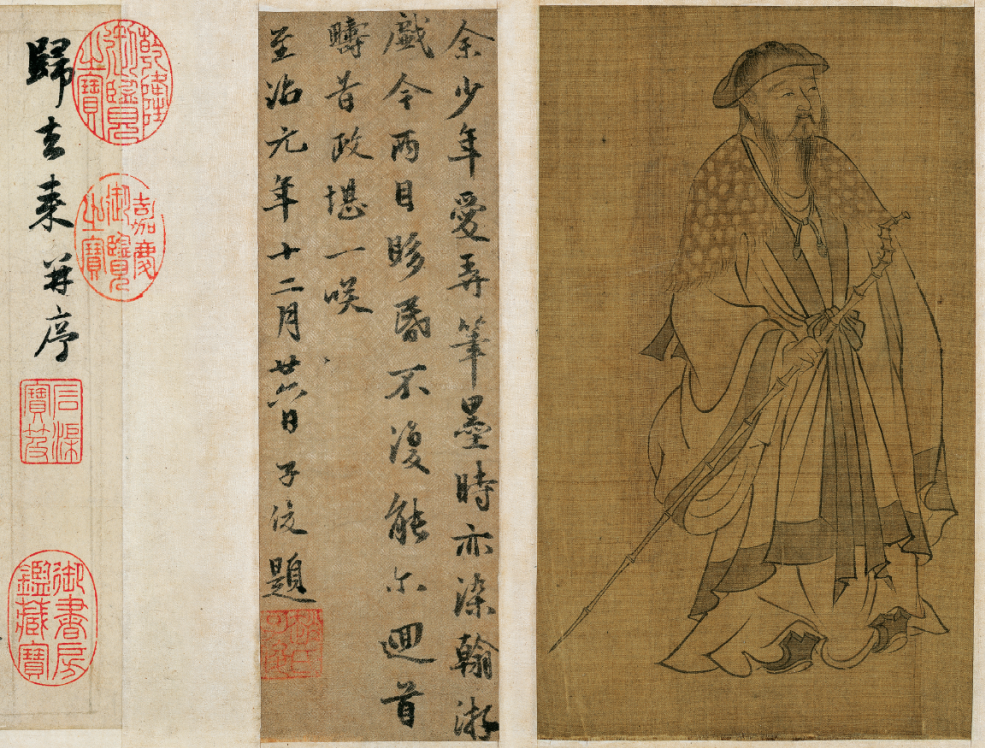 余少年愛弄筆墨時亦染翰游
戲今两目眵昬不復能尔迴首
疇昔政堪一咲
至治元年十二月廿六日子俊題
乾隆御覽之寶
嘉慶御覽之寶
歸去来并序
石渠寶笈
御書房鑑藏寶